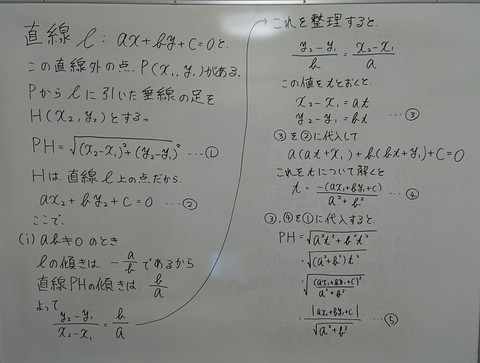 直線 l : ax+by+c=0と.
この直線外の点 P(x₁, y₁)がある.
Pから l に引いた垂線の足を
H(x₂, y₂)とする。
PH=√((x₂-x₁)²+(y₂-y₁)²) …①
Hは直線 l 上の点だから.
ax₂+by₂+c=0 …②
ここで.
(i) ab≠0のとき
lの傾きは -a/b であるから
直線PHの傾きは b/a
よって
(y₂-y₁)/(x₂-x₁) = b/a
これを整理すると.
(y₂-y₁)/b = (x₂-x₁)/a
この値をtとおくと.
x₂-x₁=at
y₂-y₁=bt …③
③を②に代入して
a(at+x₁)+b(bt+y₁)+c=0
これをtについて解くと
t= -(ax₁+by₁+c)/(a²+b²) …④
③,④を①に代入すると.
PH=√(a²t²+b²t²)
=√((a²+b²)t²)
=√((ax₁+by₁+c)²/(a²+b²))
=|ax₁+by₁+c|/√(a²+b²) …⑤